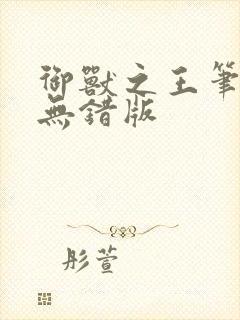 御獸之王筆
無錯版
彤萱